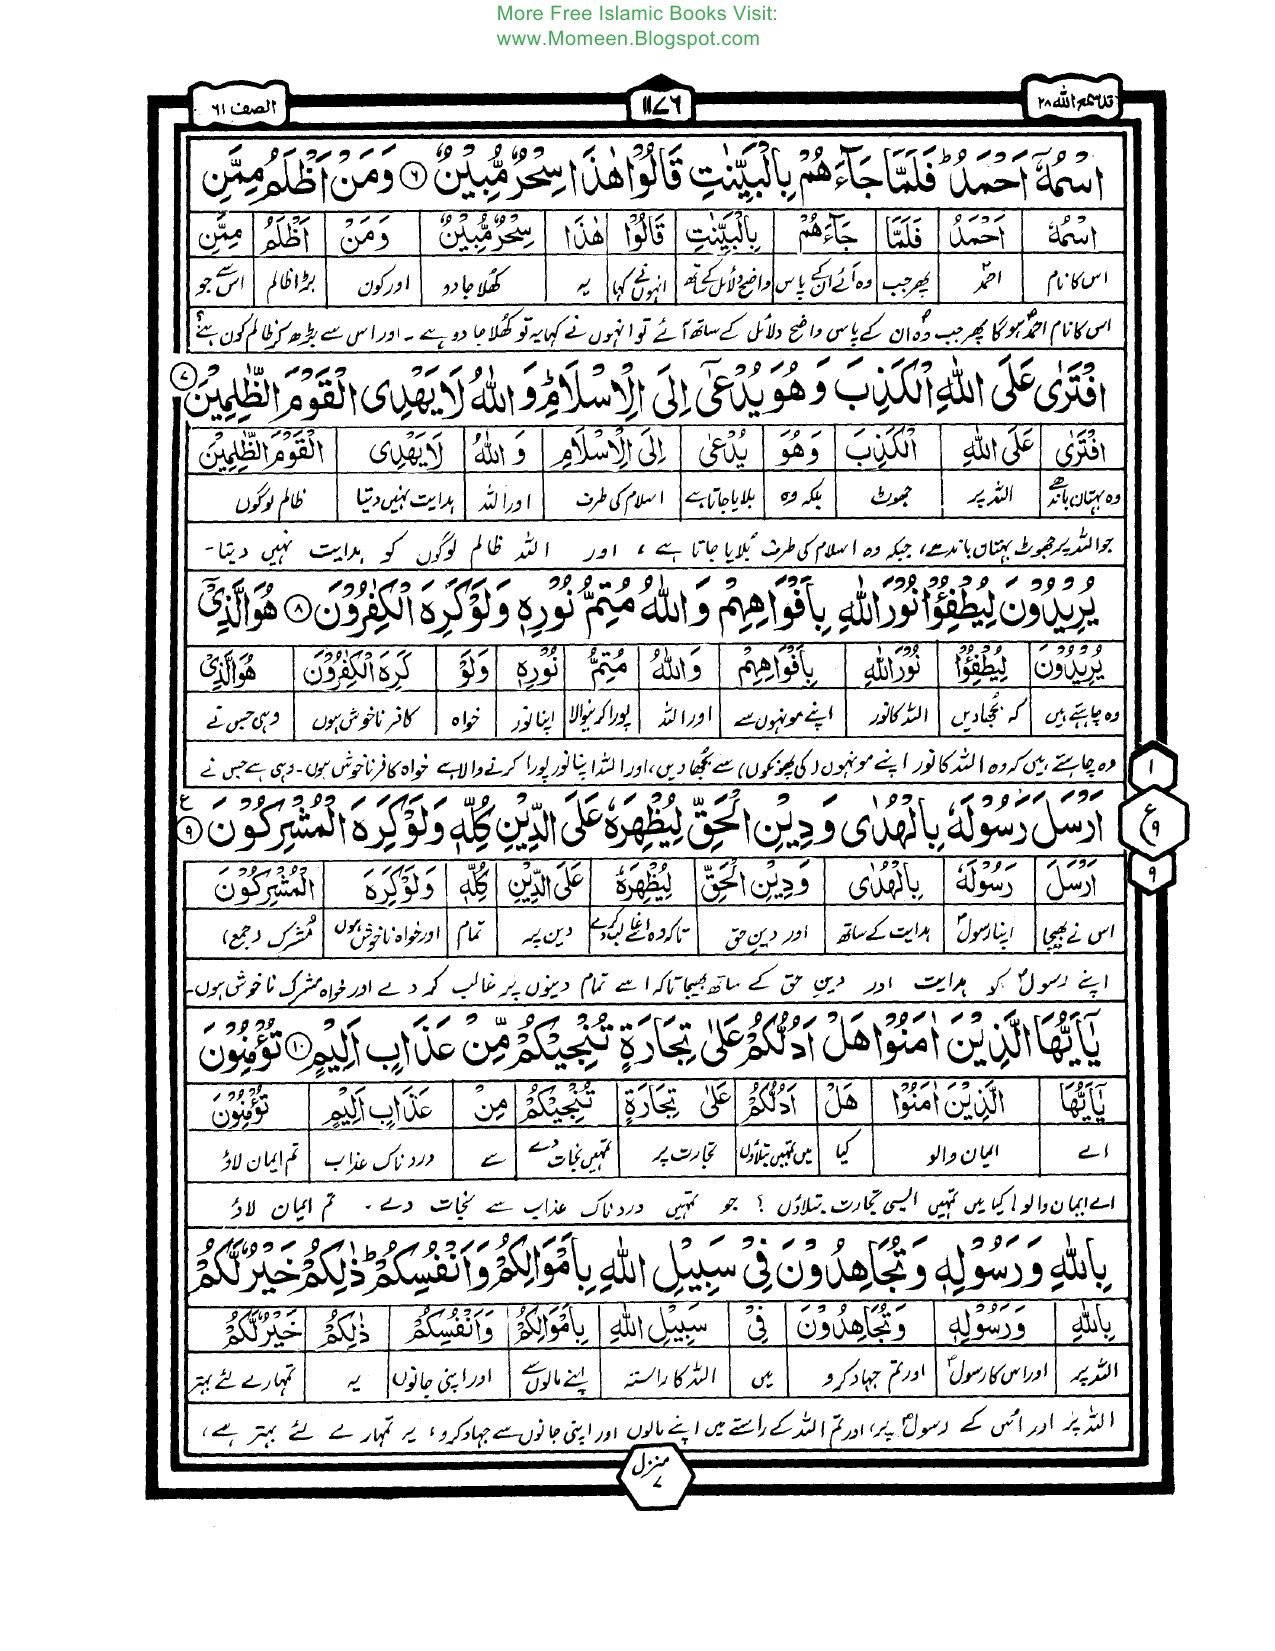 More Free Islamic Books Visit:
www.Momeen.Blogspot.com
قد سمع الله ٢٨
١١٧٦
الصف ٦١
اسْمُهٗۤ اَحْمَدُ ؕ فَلَمَّا جَآءَهُمْ بِالْبَيِّنٰتِ قَالُوْا هٰذَا سِحْرٌ مُّبِيْنٌ ۶ وَمَنْ اَظْلَمُ مِمَّنِ
اسْمُهٗۤ اَحْمَدُ فَلَمَّا جَآءَهُمْ بِالْبَيِّنٰتِ قَالُوْا هٰذَا سِحْرٌ مُّبِيْنٌ وَمَنْ اَظْلَمُ مِمَّنِ
اس کا نام احمدؐ پھر جب وہ آئے ان کے پاس واضح دلائل کے ساتھ انہوں نے کہا یہ کھلا جادو اور کون بڑا ظالم اس سے جو
اس کا نام احمدؐ ہوگا پھر جب وہؐ ان کے پاس واضح دلائل کے ساتھ آئے تو انہوں نے کہا یہ تو کھُلا جادو ہے ۔ اور اس سے بڑھ کر ظالم کون ہے؟
افْتَرٰى عَلَى اللّٰهِ الْكَذِبَ وَهُوَ يُدْعٰۤى اِلَى الْاِسْلَامِ ؕ وَاللّٰهُ لَا يَهْدِى الْقَوْمَ الظّٰلِمِيْنَ ۷
افْتَرٰى عَلَى اللّٰهِ الْكَذِبَ وَهُوَ يُدْعٰى اِلَى الْاِسْلَامِ وَاللّٰهُ لَا يَهْدِى الْقَوْمَ الظّٰلِمِيْنَ
وہ بہتان باندھے اللہ پر جھوٹ بلکہ وہ بلایا جاتا ہے اسلام کی طرف اور اللہ ہدایت نہیں دیتا ظالم لوگوں
جو اللہ پر جھوٹ بہتان باندھے، جبکہ وہ اسلام کی طرف بُلایا جاتا ہے، اور اللہ ظالم لوگوں کو ہدایت نہیں دیتا۔
يُرِيْدُوْنَ لِيُطْفِـُٔوْا نُوْرَ اللّٰهِ بِاَفْوَاهِهِمْ وَاللّٰهُ مُتِمُّ نُوْرِهٖ وَلَوْ كَرِهَ الْكٰفِرُوْنَ ۸ هُوَ الَّذِيْۤ
يُرِيْدُوْنَ لِيُطْفِـُٔوْا نُوْرَ اللّٰهِ بِاَفْوَاهِهِمْ وَاللّٰهُ مُتِمُّ نُوْرِهٖ وَلَوْ كَرِهَ الْكٰفِرُوْنَ هُوَ الَّذِيْۤ
وہ چاہتے ہیں کہ بجھادیں اللہ کا نور اپنے مونہوں سے اور اللہ پورا کرنیوالا اپنا نور خواہ کافر ناخوش ہوں وہی جس نے
وہ چاہتے ہیں کہ وہ اللہ کا نور اپنے مونہوں (کی پھونکوں) سے بجھا دیں، اور اللہ اپنا نور پورا کرنے والا ہے خواہ کافر ناخوش ہوں۔ وہی ہے جس نے
اَرْسَلَ رَسُوْلَهٗ بِالْهُدٰى وَدِيْنِ الْحَقِّ لِيُظْهِرَهٗ عَلَى الدِّيْنِ كُلِّهٖ وَلَوْ كَرِهَ الْمُشْرِكُوْنَ ۹ ع
اَرْسَلَ رَسُوْلَهٗ بِالْهُدٰى وَدِيْنِ الْحَقِّ لِيُظْهِرَهٗ عَلَى الدِّيْنِ كُلِّهٖ وَلَوْ كَرِهَ الْمُشْرِكُوْنَ
اس نے بھیجا اپنا رسولؐ ہدایت کے ساتھ اور دینِ حق تاکہ وہ اسے غالب کردے دین پر تمام اور خواہ ناخوش ہوں مُشرک (جمع)
اپنے رسولؐ کو ہدایت اور دینِ حق کے ساتھ بھیجا تاکہ اسے تمام دینوں پر غالب کر دے اور خواہ مشرک ناخوش ہوں۔
١
ع
٩
٩
يٰۤاَيُّهَا الَّذِيْنَ اٰمَنُوْا هَلْ اَدُلُّكُمْ عَلٰى تِجَارَةٍ تُنْجِيْكُمْ مِّنْ عَذَابٍ اَلِيْمٍ ۱۰ تُؤْمِنُوْنَ
يٰۤاَيُّهَا الَّذِيْنَ اٰمَنُوْا هَلْ اَدُلُّكُمْ عَلٰى تِجَارَةٍ تُنْجِيْكُمْ مِنْ عَذَابٍ اَلِيْمٍ تُؤْمِنُوْنَ
اے ایمان والو کیا میں تمہیں بتلاؤں تجارت پر تمہیں نجات دے سے دردناک عذاب تم ایمان لاؤ
اے ایمان والو! کیا میں تمہیں ایسی تجارت بتلاؤں ؟ جو تمہیں دردناک عذاب سے نجات دے ۔ تم ایمان لاؤ
بِاللّٰهِ وَرَسُوْلِهٖ وَتُجَاهِدُوْنَ فِيْ سَبِيْلِ اللّٰهِ بِاَمْوَالِكُمْ وَاَنْفُسِكُمْ ؕ ذٰلِكُمْ خَيْرٌ لَّكُمْ
بِاللّٰهِ وَرَسُوْلِهٖ وَتُجَاهِدُوْنَ فِيْ سَبِيْلِ اللّٰهِ بِاَمْوَالِكُمْ وَاَنْفُسِكُمْ ذٰلِكُمْ خَيْرٌ لَّكُمْ
اللہ پر اور اس کا رسولؐ اور تم جہاد کرو میں اللہ کا راستہ اپنے مالوں سے اور اپنی جانوں یہ تمہارے لئے بہتر
اللہ پر اور اُس کے رسولؐ پر، اور تم اللہ کے راستے میں اپنے مالوں اور اپنی جانوں سے جہاد کرو، یہ تمہارے لئے بہتر ہے،
منزل
٧